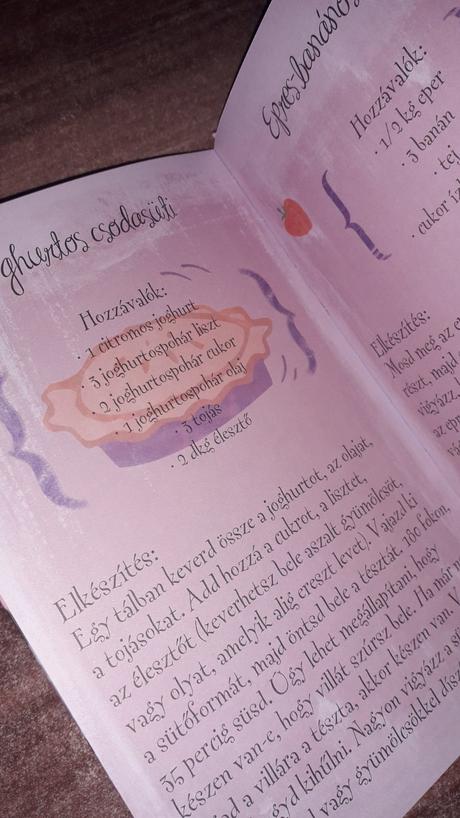 ghurtos csodasüti
Hozzávalók:
• 1 citromos joghurt
• 3 joghurtospohár liszt
• 2 joghurtospohár cukor
• 1 joghurtospohár olaj
• 3 tojás
• 2 dkg élesztő
Elkészítés:
Egy tálban keverd össze a joghurtot, az olajat,
a tojásokat. Add hozzá a cukrot, a lisztet,
az élesztőt (keverhetsz bele aszalt gyümölcsöt,
vagy olyat, amelyik alig ereszt levet). Vajazd ki
a sütőformát, majd öntsd bele a tésztát. 180 fokon,
35 percig süsd. Úgy lehet megállapítani, hogy
készen van-e, hogy villát szúrsz bele. Ha már n
ad a villára a tészta, akkor készen van. V
gyd kihűlni. Nagyon vigyázz a sü
vagy gyümölcsökkel dísz
Epres-banános
Hozzávalók:
• 1/2 kg eper
• 3 banán
• tej
• cukor
Elkészítés:
Mosd meg az
részt, majd
vigyázz,
az